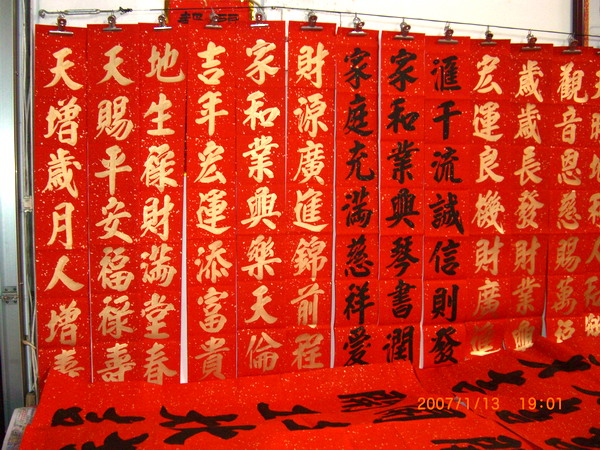 天增歲月人增壽
天賜平安福祿壽
地生祿財滿堂春
吉年宏運添富貴
家和業興樂天倫
財源廣進錦前程
家庭充滿慈祥愛
家和業興琴書潤
滙千流誠信則發
宏運良機財廣進
歲歲長發財業興
觀音恩慈賜萬
2007/1/13 19:01